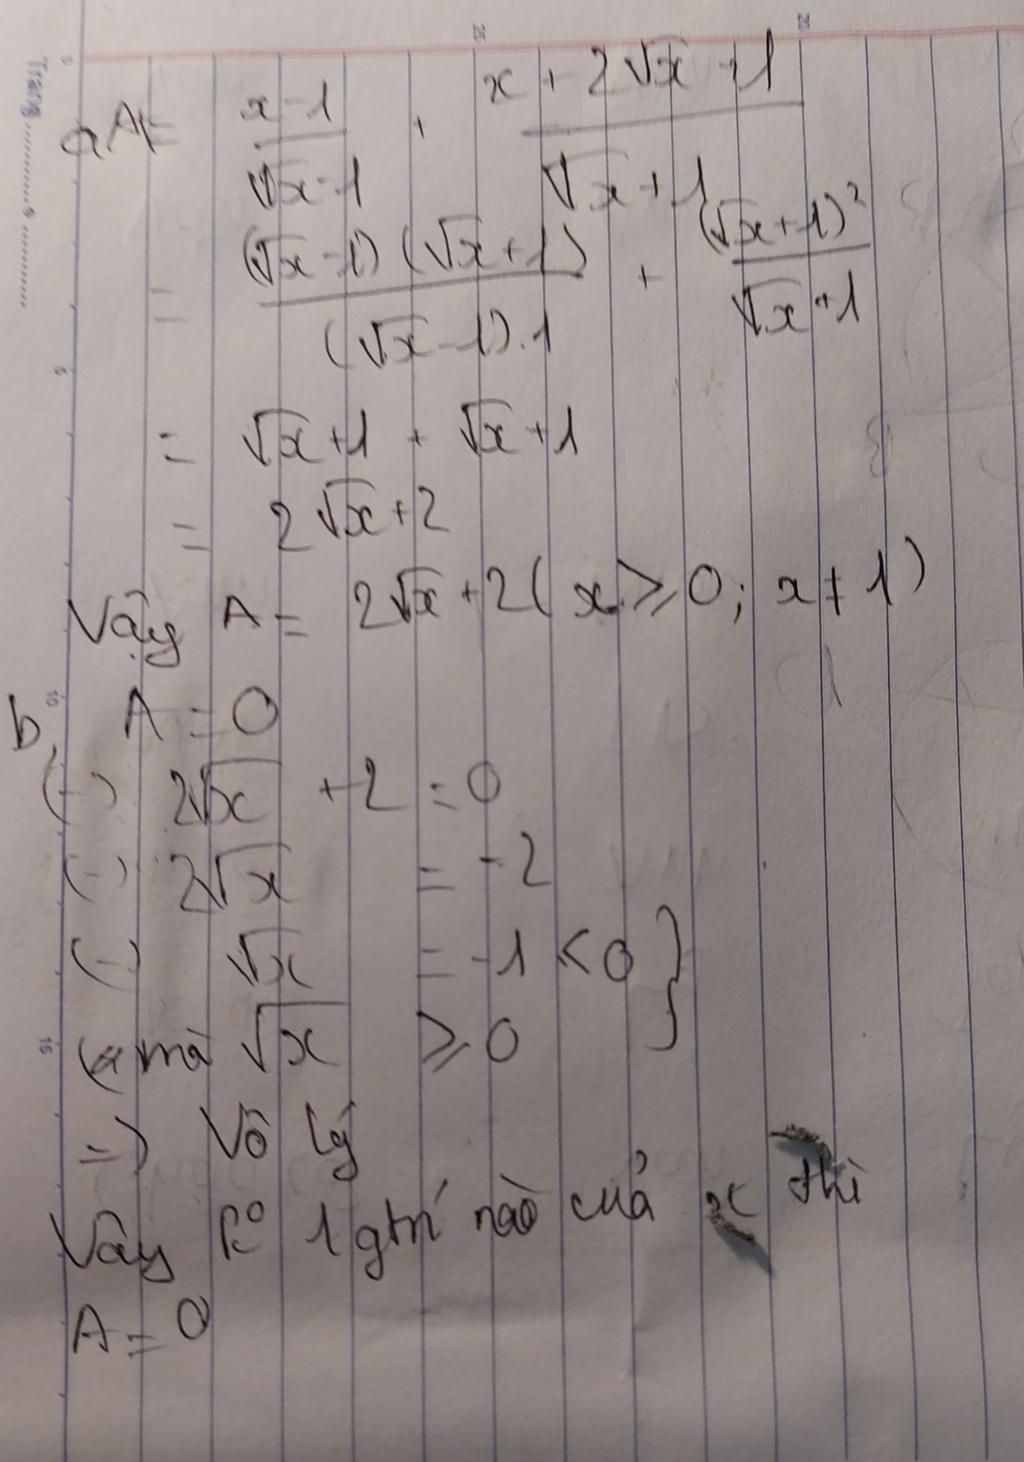 a, A = \frac{x-1}{\sqrt{x}-1} + \frac{x+2\sqrt{x}+1}{\sqrt{x}+1}
= \frac{(\sqrt{x}-1)(\sqrt{x}+1)}{(\sqrt{x}-1).1} + \frac{(\sqrt{x}+1)^2}{\sqrt{x}+1}
= \sqrt{x}+1 + \sqrt{x}+1
= 2\sqrt{x}+2
Vậy A = 2\sqrt{x}+2 ( x ≥ 0; x ≠ 1)
b, A = 0
(-) 2\sqrt{x} + 2 = 0
(-) 2\sqrt{x} = -2
(-) \sqrt{x} = -1 < 0 }
mà \sqrt{x} ≥ 0
=) Vô lý
Vậy k° 1 gtrí nào của x thì
A = 0
Trang
5
10
15
25